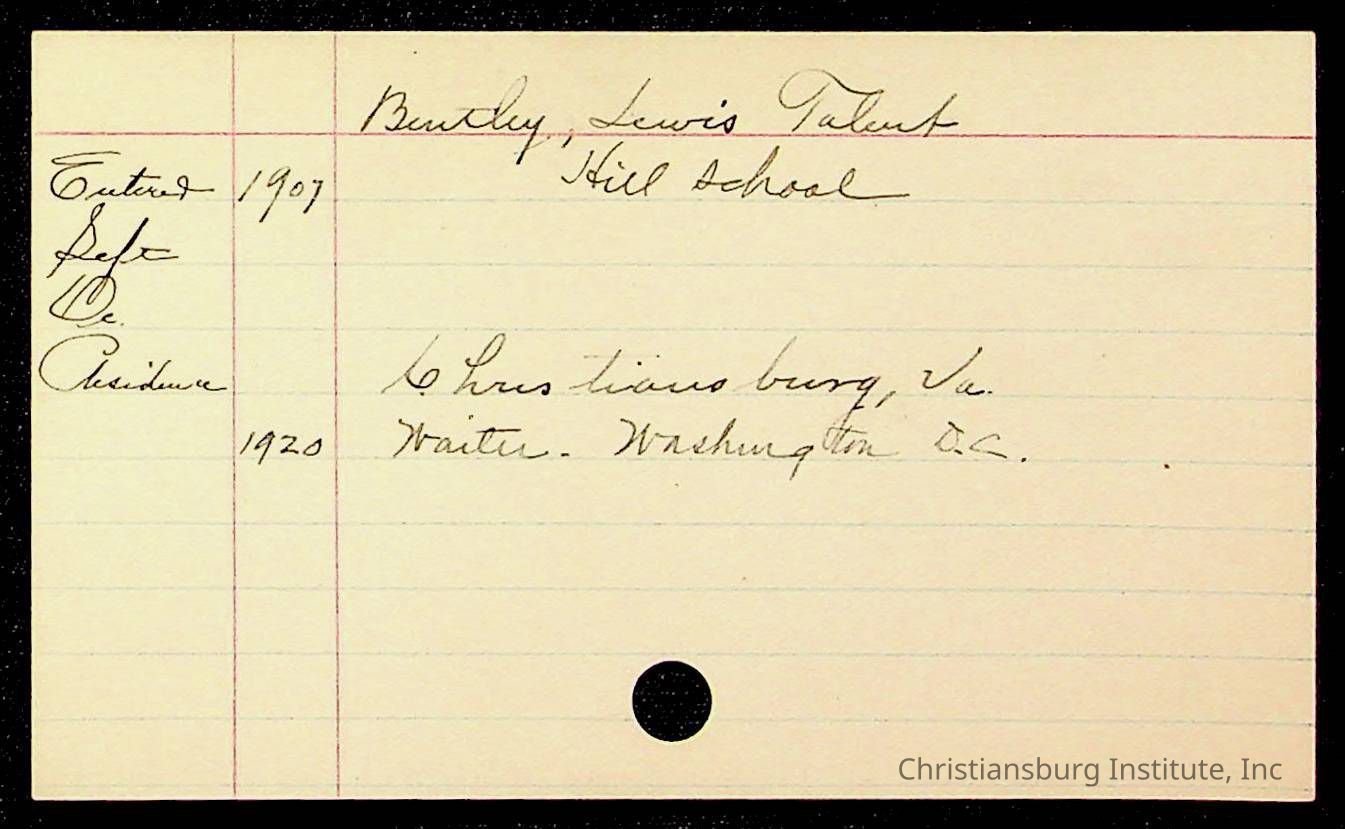 Bentley, Lewis Talent
Entered 1907 Hill School
Left
Oc.
Residence Christiansburg, Va.
1920 Waiter - Washington D.C.
Christiansburg Institute, Inc